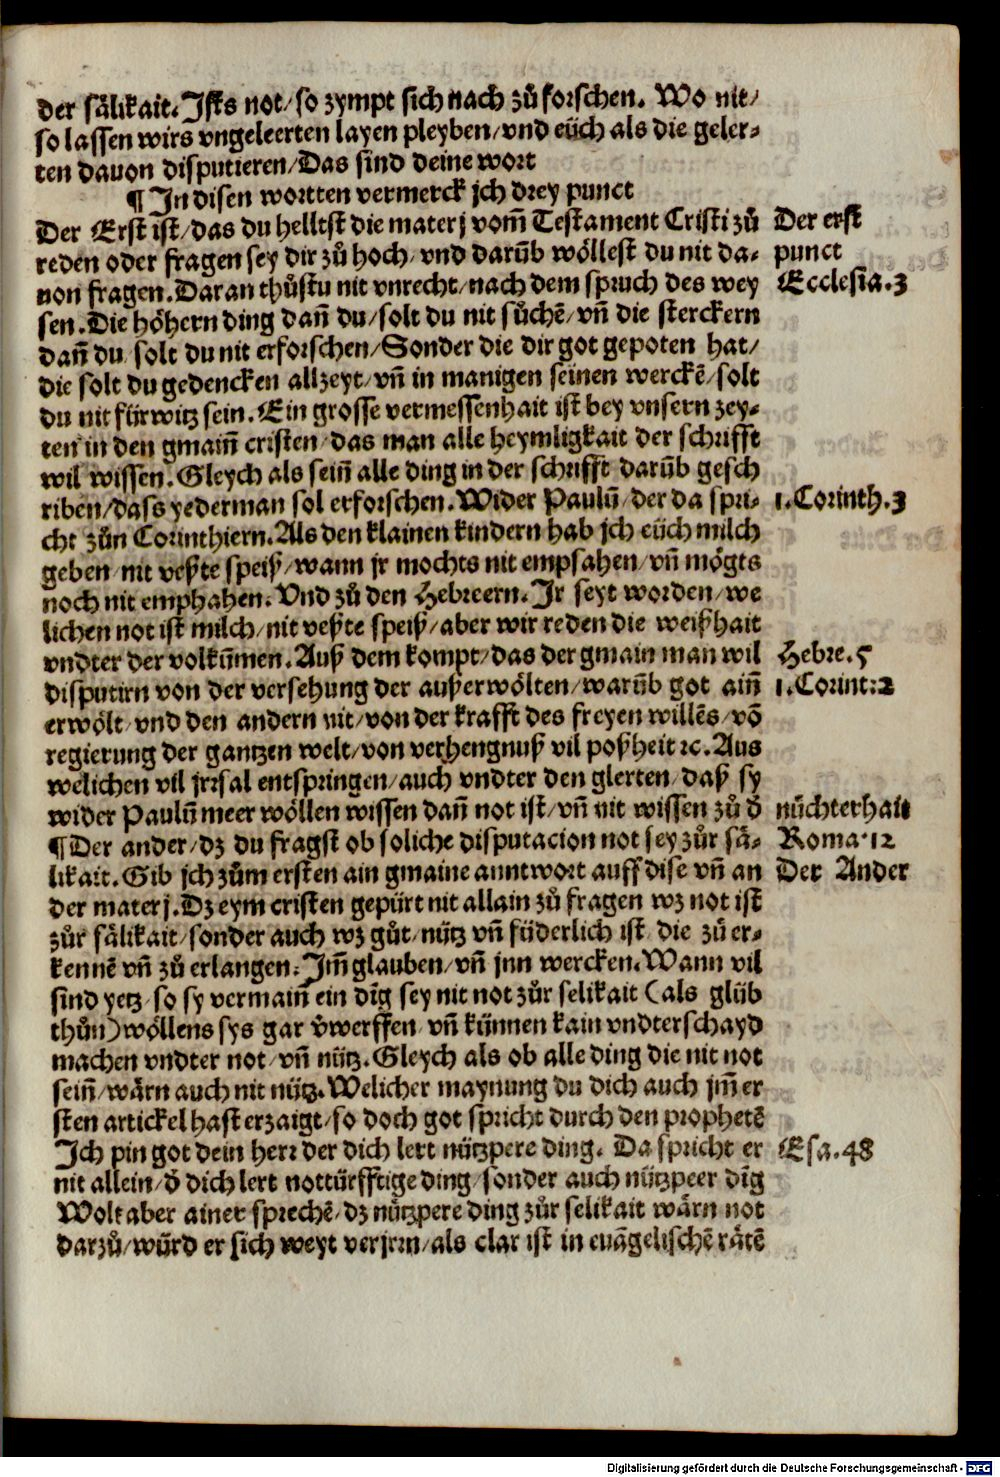 der sälikait. Jsts not/ so zympt sich nach zů forschen. Wo nit/
so lassen wirs vngeleerten layen pleyben/ vnd eüch als die geler-
ten dauon disputieren/ Das sind deine wort
¶ In disen wortten vermerck jch drey punct
Der Erst ist/ das du helltst die materj vom̄ Testament Cristi zů Der erst
reden oder fragen sey dir zů hoch/ vnd darūb wöllest du nit da- punct
uon fragen. Daran thůstu nit vnrecht/ nach dem spruch des wey Ecclesia. 3
sen. Die höhern ding dañ du/ solt du nit sůchē/ vñ die sterckern
dañ du/ solt du nit erforschen/ Sonder die dir got gepoten hat/
die solt du gedencken allzeyt/ vñ in manigen seinen werckē/ solt
du nit fürwitz sein. Ein grosse vermessenhait ist bey vnsern zey-
ten in den gmaiñ cristen/ das man alle heymligkait der schrifft
wil wissen. Gleych als seiñ alle ding in der schrifft darūb gesch
riben/ dass yederman sol erforschen. Wider Paulū/ der da spri- 1. Corinth. 3
cht zůn Corinthiern. Als den klainen kindern hab jch eüch milch
geben/ nit veßte speiß/ wann jr mochts nit empfahen/ vñ mögts
noch nit emphahen. Vnd zů den Hebreern. Jr seyt worden/ we
lichen not ist milch/ nit veßte speiß/ aber wir reden die weißhait
vndter der volkūmen. Auß dem kompt/ das der gmain man wil Hebre. 5
disputirn von der versehung der außerwölten/ warūb got aiñ 1. Corint: 2
erwölt/ vnd den andern nit/ von der krafft des freyen willēs/ vō
regierung der gantzen welt/ von verhengnuß vil poßheit ꝛc. Aus
welichen vil jrrsal entspringen/ auch vndter den glerten/ daß sy
wider Paulū meer wöllen wissen dañ not ist/ vñ nit wissen zů d̄ nüchterhait
¶ Der ander/ dz du fragst ob soliche disputacion not sey zůr sä- Roma. 12
likait. Gib jch zům ersten ain gmaine anntwort auff dise vñ an Der Ander
der materj. Dz eym cristen gepürt nit allain zů fragen wz not ist
zůr sälikait/ sonder auch wz gůt/ nütz vñ füderlich ist/ die zů er-
kennē vñ zů erlangen: Jm̄ glauben/ vñ jnn wercken. Wann vil
sind yetz/ so sy vermaiñ ein dīg sey nit not zůr selikait (als glüb
thůn) wöllens sys gar v̄werffen/ vñ künnen kain vndterschayd
machen vndter not/ vñ nütz. Gleych als ob alle ding die nit not
seiñ/ wärn auch nit nütz. Welicher maynung du dich auch jm̄ er
sten artickel hast erzaigt/ so doch got spricht durch den prophetē
Ich pin got dein herr der dich lert nützpere ding. Da spricht er Esa. 48
nit allein/ d̄ dich lert nottürfftige ding/ sonder auch nützpeer dīg
Wolt aber ainer sprechē/ dz nützpere ding zůr selikait wärn not
darzů/ würd er sich weyt verjrrn/ als clar ist in euāgelischē rätē
Digitalisierung gefördert durch die Deutsche Forschungsgemeinschaft - DFG